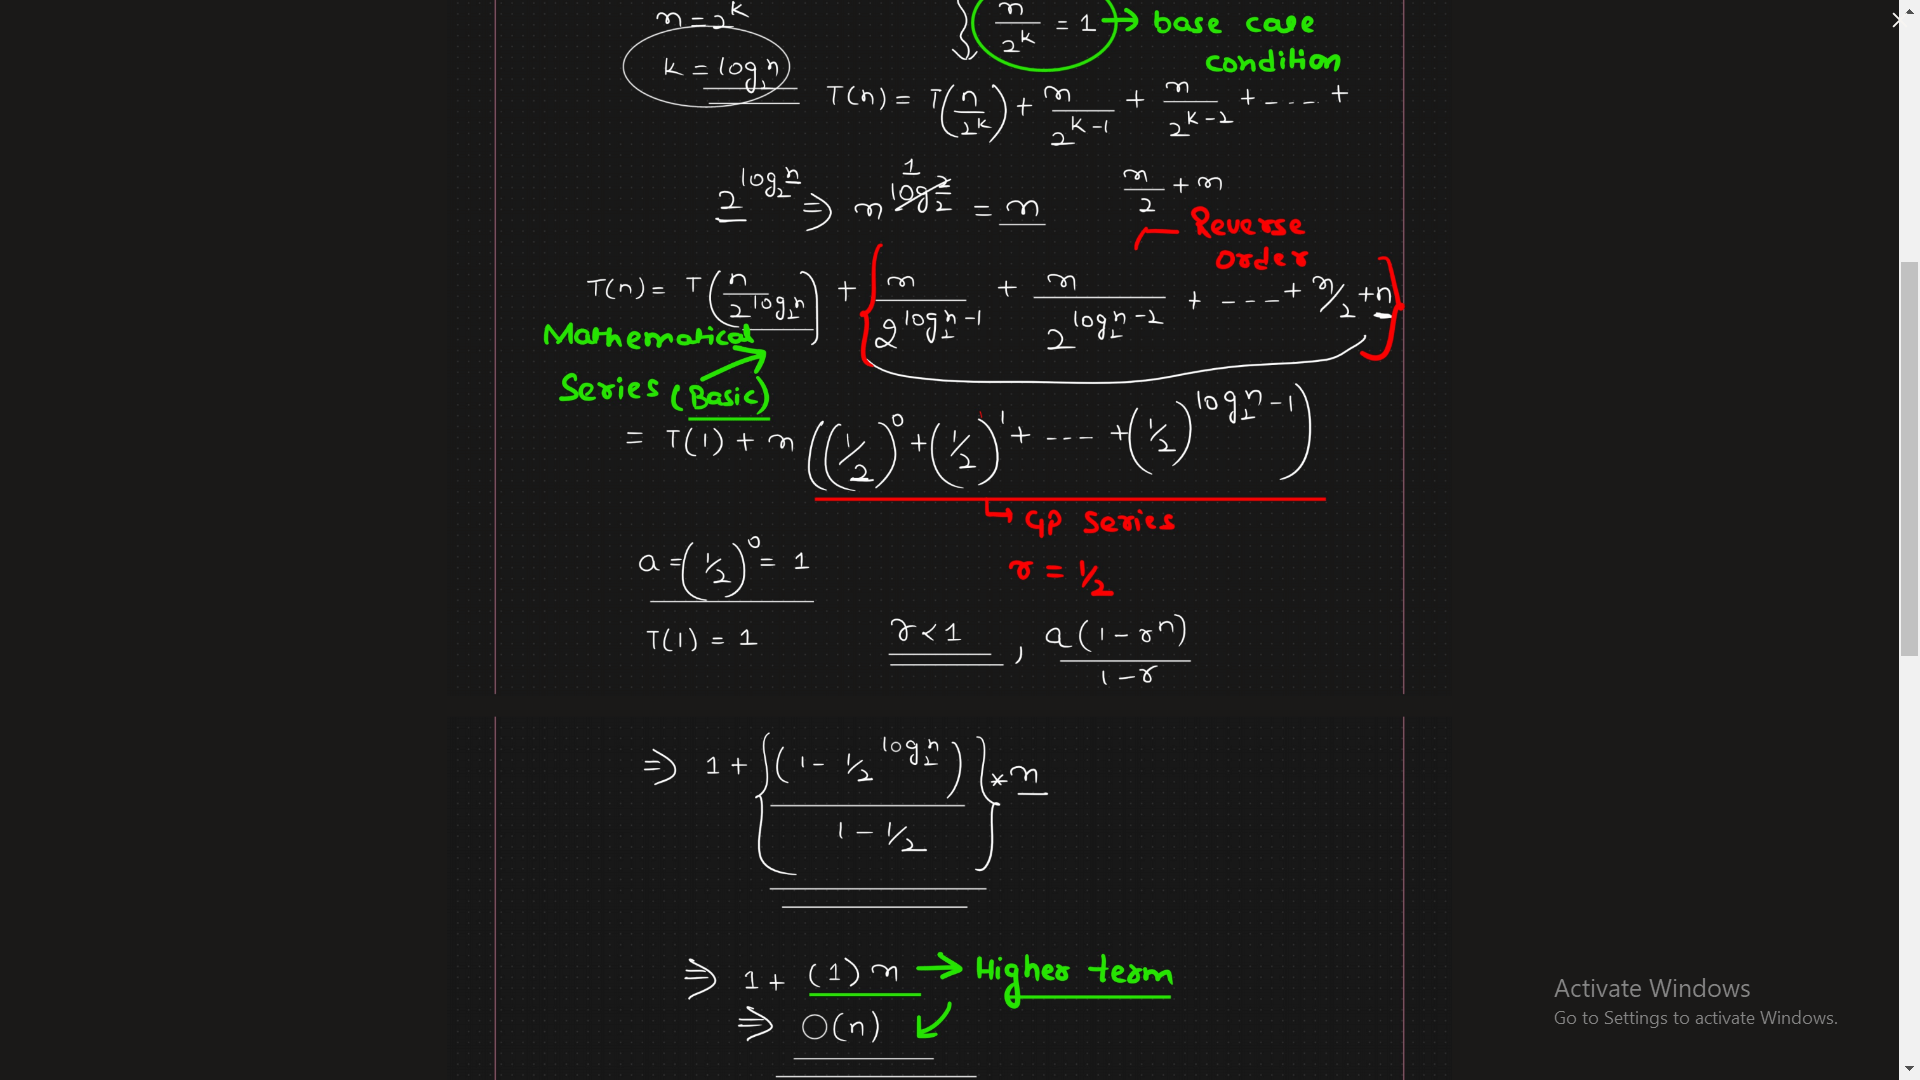 n = 2^k
n/2^k = 1 → base case
condition
k = log₂n
T(n) = T(n/2^k) + n/2^(k-1) + n/2^(k-2) + ---- +
n/2 + n
2^(log₂n) ⇒ n^(log₂2) = n
1
Reverse
order
T(n) = T(n/2^(log₂n)) + { n/2^(log₂n-1) + n/2^(log₂n-2) + ---- + n/2 + n }
Mathematical
Series (Basic)
= T(1) + n((1/2)^0 + (1/2)^1 + ---- + (1/2)^(log₂n-1))
GP Series
r = 1/2
a = (1/2)^0 = 1
T(1) = 1
r < 1 , a(1-r^n)/1-r
⇒ 1 + { (1 - 1/2^(log₂n)) / 1 - 1/2 } * n
⇒ 1 + (1) n → Higher term
⇒ O(n)
Activate Windows
Go to Settings to activate Windows.